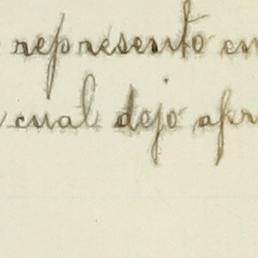 represento en
cual dejo